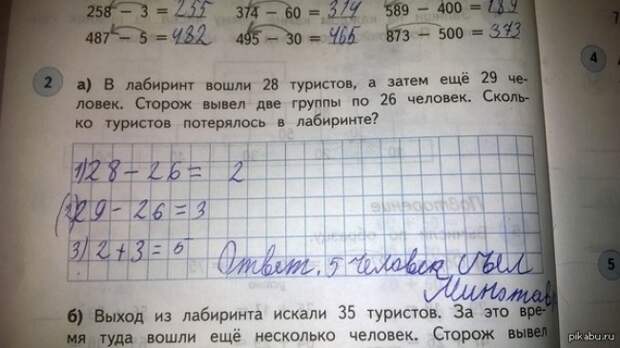 258 − 3 = 255 374 − 60 = 314 589 − 400 = 189
487 − 5 = 482 495 − 30 = 465 873 − 500 = 373
2 а) В лабиринт вошли 28 туристов, а затем ещё 29 че-
ловек. Сторож вывел две группы по 26 человек. Сколь-
ко туристов потерялось в лабиринте?
1) 28 − 26 = 2
2) 29 − 26 = 3
3) 2 + 3 = 5
Ответ. 5 человек съел
Минотав
б) Выход из лабиринта искали 35 туристов. За это вре-
мя туда вошли ещё несколько человек. Сторож вывел
4
5
pikabu.ru